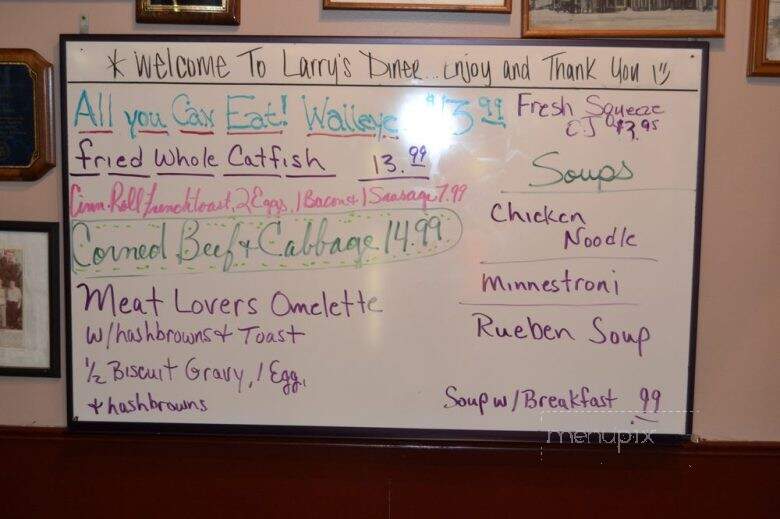 * Welcome To Larry's Diner... Enjoy and Thank You
All you Can Eat! Walleye $13.99
Fried Whole Catfish 13.99
Cinn. Roll french toast, 2 Eggs, 1 Bacon + 1 Sausage 7.99
Corned Beef + Cabbage 14.99
Meat Lovers Omelette
w/hashbrowns + Toast
1/2 Biscuit Gravy, 1 Egg,
+ hashbrowns
Fresh Squeeze
O.J $3.95
Soups
Chicken
Noodle
Minnestroni
Rueben Soup
Soup w/Breakfast .99
menupix